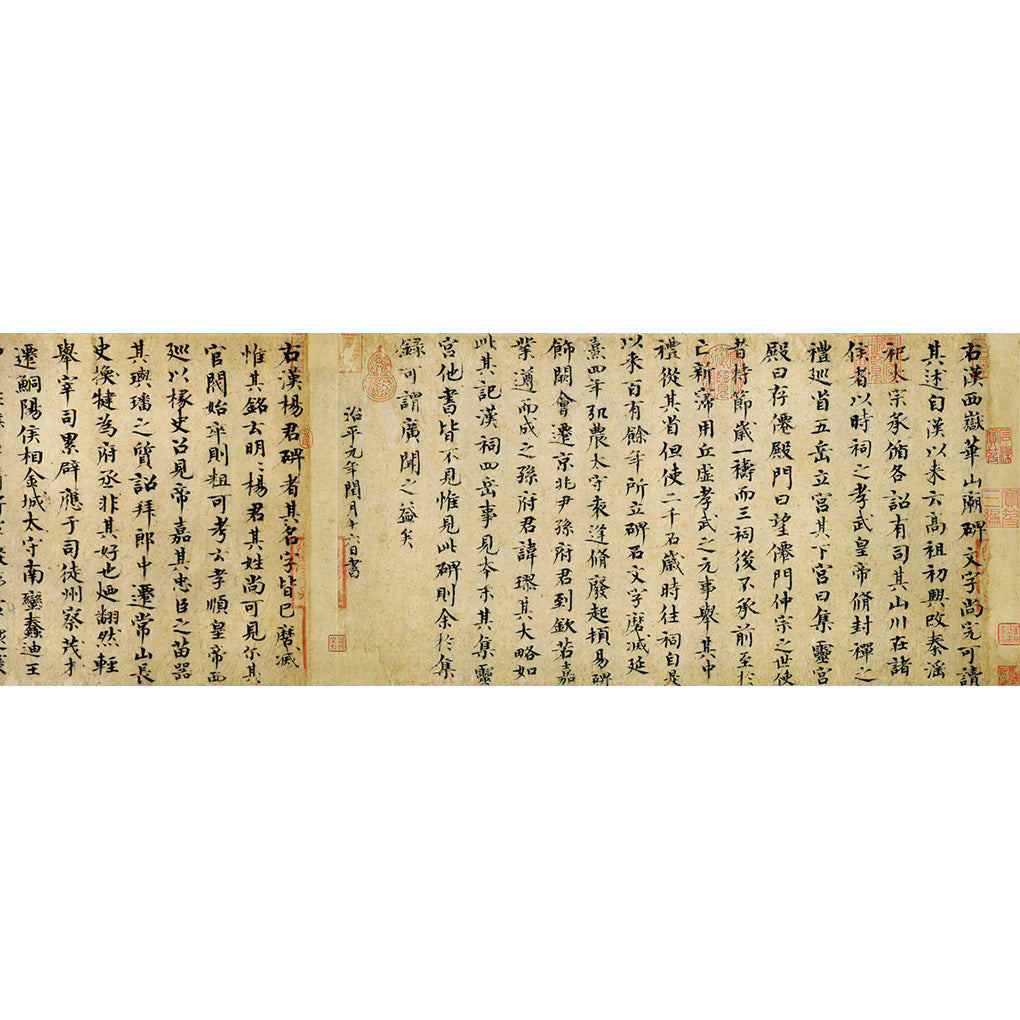 右漢西嶽華山廟碑文字尚完可讀
其述自漢以来云高祖初興改秦淫
祀太宗承循各詔有司其山川在諸
侯者以時祠之孝武皇帝脩封禪之
禮巡省五岳立宮其下宮曰集靈宮
殿曰存僊殿門曰望僊門仲宗之世使
者持節歲一禱而三祠後不承前至於
亡新寖用丘虛孝武之元事舉其中
禮從其省但使二千石歲時往祠自是
以来百有餘年所立碑石文字磨滅延
熹四年弘農太守袁逢脩廢起頓易碑
飾闕會遷京兆尹孫府君到欽若嘉
業遵而成之孫府君諱璆其大略如
此其記漢祠四岳事見本末其集靈
宮他書皆不見惟見此碑則余於集
錄可謂廣聞之益矣
治平元年閏月十六日書
右漢楊君碑者其名字皆已磨滅
惟其銘云明〻楊君其姓尚可見尔其
官閥始卒則粗可考云孝順皇帝西
巡以掾史召見帝嘉其忠臣之苗器
其璵璠之質詔拜郎中遷常山長
史換犍為府丞非其好也迺翻然輕
舉宰司累辟應于司徒州察茂才
遷鮦陽侯相金城太守南蠻蠢迪王